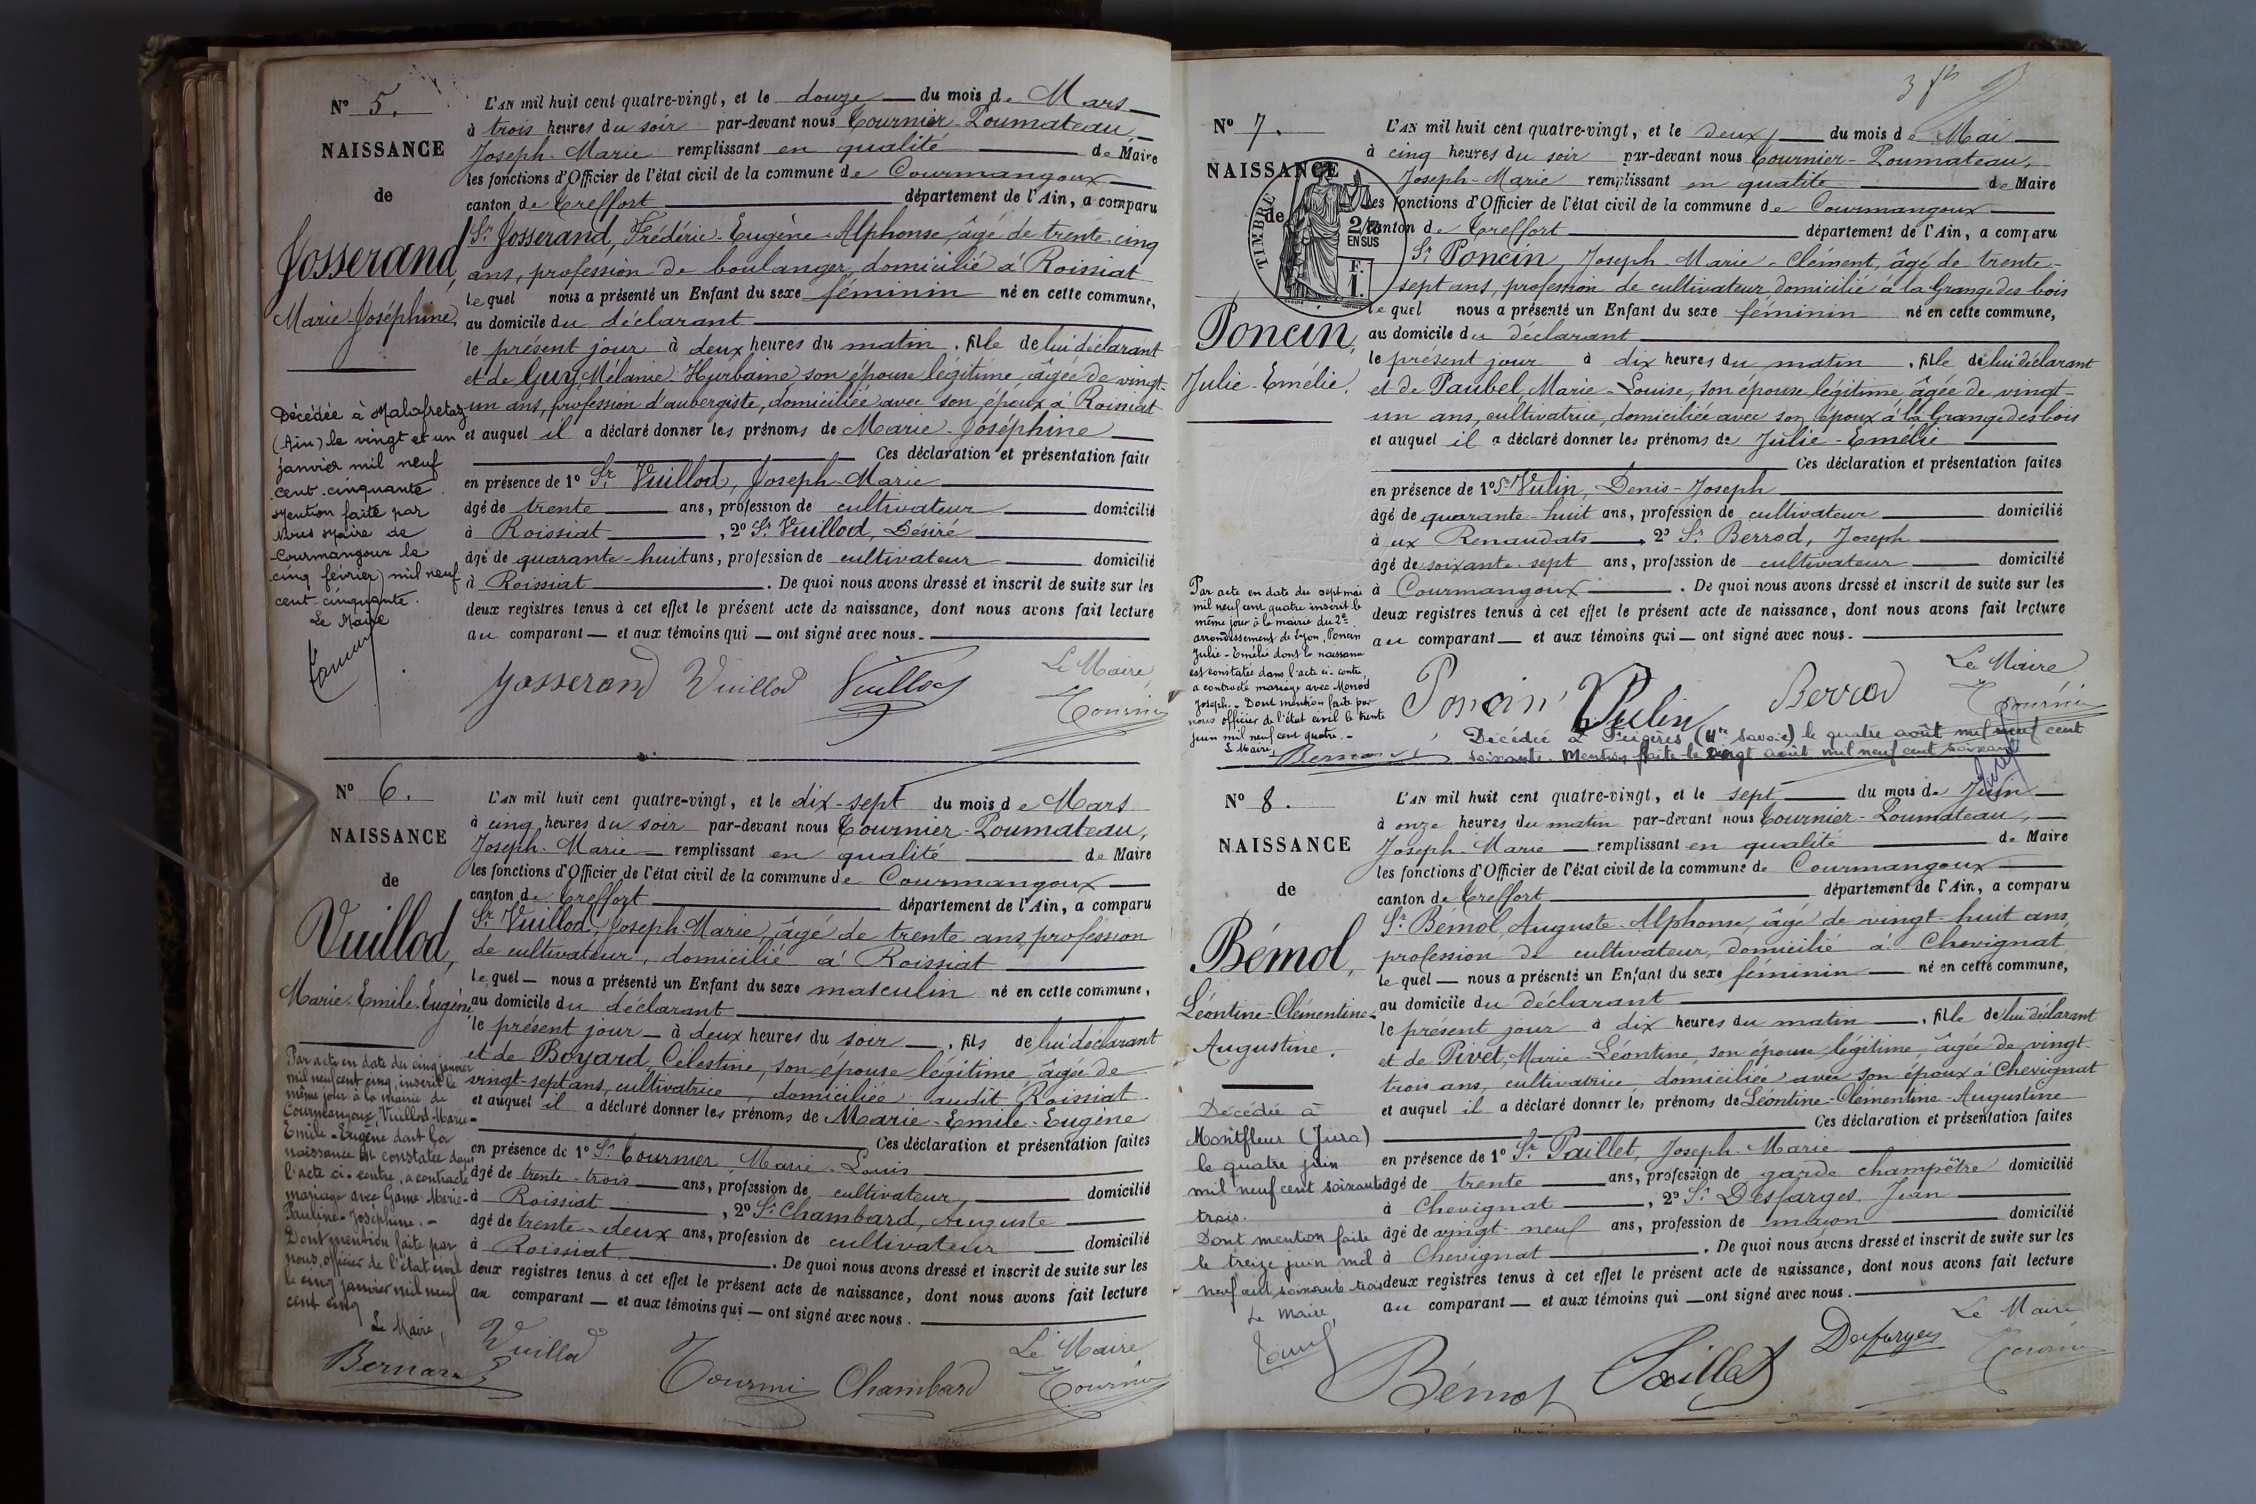 N° 5.
NAISSANCE
de
Josserand,
Marie-Joséphine,
Décédée à Malafretaz
(Ain) le vingt et un
janvier mil neuf
cent cinquante.
Mention faite par
Nous Maire de
Courmangoux le
cinq février mil neuf
cent-cinquante.
Le Maire
L'AN mil huit cent quatre-vingt, et le douze du mois de Mars
à trois heures du soir par-devant nous Tournier-Poumateau,
Joseph-Marie remplissant en qualité de Maire
les fonctions d'Officier de l'état civil de la commune de Courmangoux
canton de Treffort département de l'Ain, a comparu
Sr Josserand, Frédéric-Eugène-Alphonse, âgé de trente-cinq
ans, profession de boulanger, domicilié à Roissiat
lequel nous a présenté un Enfant du sexe féminin né en cette commune,
au domicile du déclarant
le présent jour à deux heures du matin, fille de lui déclarant
et de Guy, Mélanie-Hurbaine son épouse légitime âgée de vingt-
un ans, profession d'aubergiste, domiciliée avec son époux à Roissiat
et auquel il a déclaré donner les prénoms de Marie-Joséphine
Ces déclaration et présentation faites
en présence de 1° Sr Vuillod, Joseph-Marie
âgé de trente ans, profession de cultivateur domicilié
à Roissiat, 2° Sr Vuillod, Désiré
âgé de quarante-huit ans, profession de cultivateur domicilié
à Roissiat. De quoi nous avons dressé et inscrit de suite sur les
deux registres tenus à cet effet le présent acte de naissance, dont nous avons fait lecture
au comparant et aux témoins qui ont signé avec nous.
Josserand Vuillod Vuillod
Le Maire,
Tournier
N° 6.
NAISSANCE
de
Vuillod,
Marie-Emile-Eugène
Par acte en date du cinq janvier
mil neuf cent cinq, inscrit le
même jour à la mairie de
Courmangoux, Vuillod Marie-
Emile-Eugène dont la
naissance est constatée dans
l'acte ci-contre, a contracté
mariage avec Marie-
Pauline-Joséphine.-
Dont mention faite par
nous, officier de l'état civil
le cinq janvier mil neuf
cent cinq
Le Maire,
Bernard
L'AN mil huit cent quatre-vingt, et le dix-sept du mois de Mars
à cinq heures du soir par-devant nous Tournier-Poumateau,
Joseph-Marie remplissant en qualité de Maire
les fonctions d'Officier de l'état civil de la commune de Courmangoux
canton de Treffort département de l'Ain, a comparu
Sr Vuillod, Joseph-Marie, âgé de trente ans, profession
de cultivateur, domicilié à Roissiat
lequel nous a présenté un Enfant du sexe masculin né en cette commune,
au domicile du déclarant
le présent jour à deux heures du soir, fils de lui déclarant
et de Boyard, Célestine, son épouse légitime âgée de
vingt-sept ans, cultivatrice, domiciliée audit Roissiat
et auquel il a déclaré donner les prénoms de Marie-Emile-Eugène
Ces déclaration et présentation faites
en présence de 1° Sr Tournier, Marie-Louis
âgé de trente-trois ans, profession de cultivateur, domicilié
à Roissiat, 2° Sr Chambard, Auguste
âgé de trente-deux ans, profession de cultivateur domicilié
à Roissiat. De quoi nous avons dressé et inscrit de suite sur les
deux registres tenus à cet effet le présent acte de naissance, dont nous avons fait lecture
au comparant et aux témoins qui ont signé avec nous.
Vuillod Tournier Chambard
Le Maire
Tournier
N° 7.
NAISSANCE
de
TIMBRE
2/10
EN SUS
F.
1.
Poncin,
Julie-Emélie.
Par acte en date du sept mai
mil neuf cent quatre inscrit le
même jour à la mairie du 2e
arrondissement de Lyon, Poncin
Julie-Emélie dont la naissance
est constatée dans l'acte ci-contre,
a contracté mariage avec Monod
Joseph.- Dont mention faite par
nous officier de l'état civil le trente
juin mil neuf cent quatre.-
Le Maire,
Bernard
L'AN mil huit cent quatre-vingt, et le deux du mois de Mai
à cinq heures du soir par-devant nous Tournier-Poumateau,
Joseph-Marie remplissant en qualité de Maire
les fonctions d'Officier de l'état civil de la commune de Courmangoux
canton de Treffort département de l'Ain, a comparu
Sr Poncin, Joseph-Marie-Clément, âgé de trente-
sept ans, profession de cultivateur domicilié à la Grange des bois
lequel nous a présenté un Enfant du sexe féminin né en cette commune,
au domicile du déclarant
le présent jour à dix heures du matin, fille de lui déclarant
et de Paubel, Marie-Louise, son épouse légitime, âgée de vingt-
un ans, cultivatrice, domiciliée avec son époux à la Grange des bois
et auquel il a déclaré donner les prénoms de Julie-Emélie
Ces déclaration et présentation faites
en présence de 1° Sr Vulin, Denis-Joseph
âgé de quarante-huit ans, profession de cultivateur domicilié
à ux Renaudats, 2° Sr Berrod, Joseph
âgé de soixante-sept ans, profession de cultivateur domicilié
à Courmangoux. De quoi nous avons dressé et inscrit de suite sur les
deux registres tenus à cet effet le présent acte de naissance, dont nous avons fait lecture
au comparant et aux témoins qui ont signé avec nous.
Le Maire,
Poncin Vulin Berrod Tournier
Décédée à (Hte Savoie) le quatre août mil neuf cent
soixante. Mention faite le vingt août mil neuf cent soixante
N° 8.
NAISSANCE
de
Bémol,
Léontine-Clémentine-
Augustine.
Décédée à
Montfleur (Jura)
le quatre juin
mil neuf cent soixante
trois.
Dont mention faite
le treize juin mil
neuf cent soixante trois
Le Maire,
L'AN mil huit cent quatre-vingt, et le sept du mois de Juin
à onze heures du matin par-devant nous Tournier-Poumateau,
Joseph-Marie remplissant en qualité de Maire
les fonctions d'Officier de l'état civil de la commune de Courmangoux
canton de Treffort département de l'Ain, a comparu
Sr Bémol, Auguste-Alphonse, âgé de vingt-huit ans,
profession de cultivateur, domicilié à Chevignat
lequel nous a présenté un Enfant du sexe féminin né en cette commune,
au domicile du déclarant
le présent jour à dix heures du matin, fille de lui déclarant
et de Pivet, Marie-Léontine, son épouse légitime, âgée de vingt-
trois ans, cultivatrice domiciliée avec son époux à Chevignat
et auquel il a déclaré donner les prénoms de Léontine-Clémentine-Augustine
Ces déclaration et présentation faites
en présence de 1° Sr Paillet, Joseph-Marie
âgé de trente ans, profession de garde champêtre domicilié
à Chevignat, 2° Sr Desfarges Jean
âgé de vingt-neuf ans, profession de maçon domicilié
à Chevignat. De quoi nous avons dressé et inscrit de suite sur les
deux registres tenus à cet effet le présent acte de naissance, dont nous avons fait lecture
au comparant et aux témoins qui ont signé avec nous.
Bémol Paillet Desfarges
Le Maire
Tournier